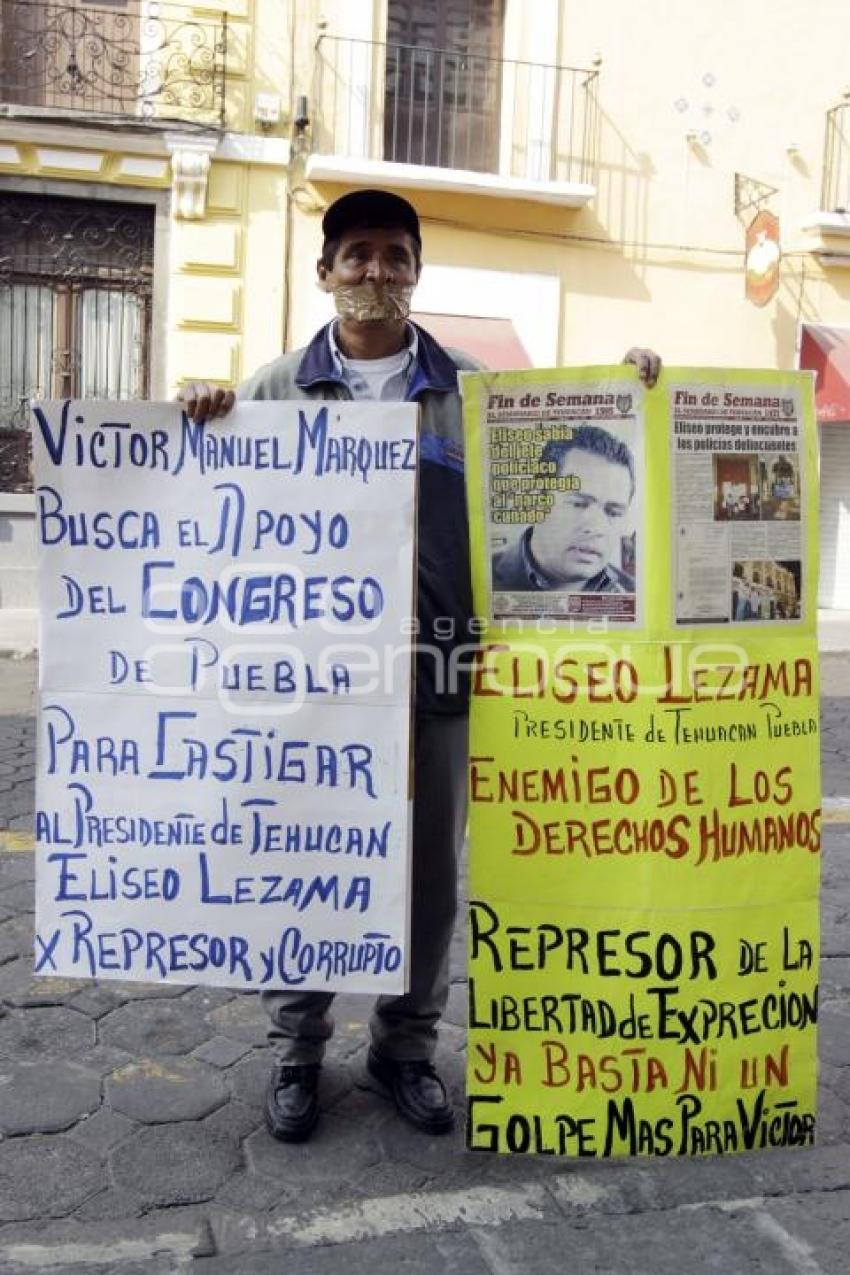 Victor Manuel Márquez
Busca el Apoyo
del Congreso
de Puebla
Para Castigar
al Presidente de Tehucan
Eliseo Lezama
x Represor y Corrupto
Fin de Semana
Eliseo sabía
del ele
policiaco que
protegía
al "narco
cuñado"
Fin de Semana
Eliseo protege y encubre a
los policías delincuentes
Eliseo Lezama
Presidente de Tehuacan Puebla
Enemigo de los
Derechos Humanos
Represor de la
Libertad de Exprecion
ya Basta Ni un
Golpe Mas Para Victor
agencia
esenfoque